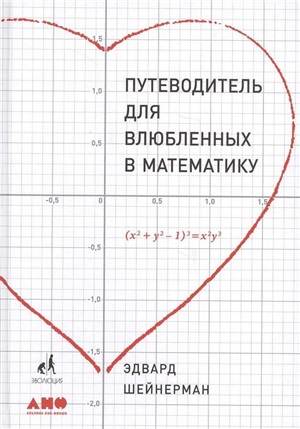 1,5
ПУТЕВОДИТЕЛЬ
ДЛЯ
ВЛЮБЛЕННЫХ
В МАТЕМАТИКУ
1,0
0,5
-0,5
0
0,5
1,0
1,5
-0,5
(x² + y² – 1)³ = x²y³
-1,0
-1,5
ЭВОЛЮЦИЯ
ЭДВАРД
ШЕЙНЕРМАН
АНФ
АЛЬПИНА НОН-ФИКШН
-2,0